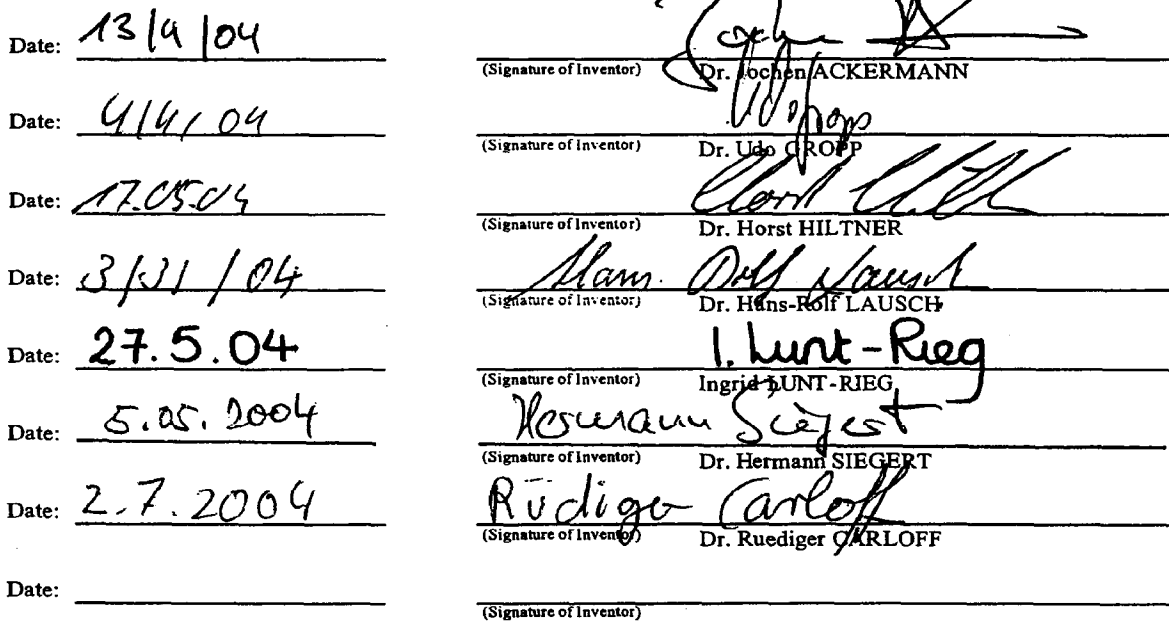 Date: 13/4/04
(Signature of Inventor) Dr. Jochen ACKERMANN
Date: 4/4/04 Udo Gropp
(Signature of Inventor) Dr. Udo GROPP
Date: 17.05.04 Horst
(Signature of Inventor) Dr. Horst HILTNER
Date: 3/31/04 Hans Rolf Lausch
(Signature of Inventor) Dr. Hans-Rolf LAUSCH
Date: 27.5.04 I. Lunt-Rieg
(Signature of Inventor) Ingrid LUNT-RIEG
Date: 5.05.2004 Hermann Siegert
(Signature of Inventor) Dr. Hermann SIEGERT
Date: 2.7.2004 Rüdiger Carloff
(Signature of Inventor) Dr. Ruediger CARLOFF
Date:
(Signature of Inventor)